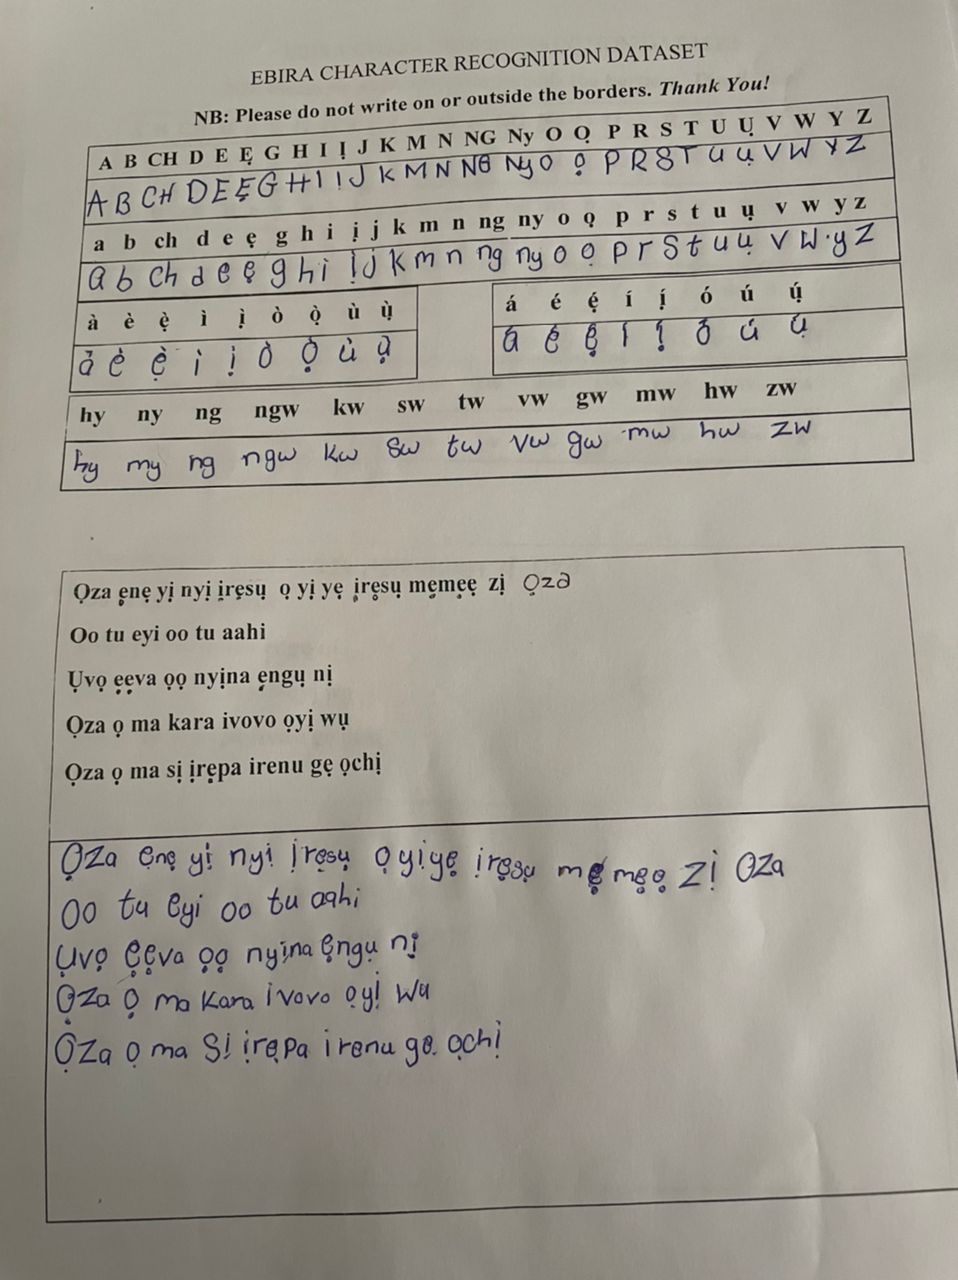 EBIRA CHARACTER RECOGNITION DATASET
NB: Please do not write on or outside the borders. Thank You!
A B CH D E Ẹ G H I Ị J K M N NG Ny O Ọ P R S T U Ụ V W Y Z
A B CH D E Ẹ G H I Ị J K M N NG Ny O Ọ P R S T U Ụ V W Y Z
a b ch d e ẹ g h i ị j k m n ng ny o ọ p r s t u ụ v w y z
a b ch d e ẹ g h i ị j k m n ng ny o ọ p r s t u ụ v w y z
à è ẹ̀ ì ị̀ ò ọ̀ ù ụ̀
à è ẹ̀ ì ị̀ ò ọ̀ ù ụ̀
á é ẹ́ í ị́ ó ú ụ́
á é ẹ́ í ị́ ó ú ụ́
hy ny ng ngw kw sw tw vw gw mw hw zw
hy my ng ngw kw sw tw vw gw mw hw zw
Ọza ẹnẹ yị nyị ịrẹsụ ọ yị yẹ ịrẹsụ mẹmẹẹ zị Ọza
Oo tu eyi oo tu aahi
Ụvọ ẹẹva ọọ nyịna ẹngụ nị
Ọza ọ ma kara ivovo ọyị wụ
Ọza ọ ma sị ịrẹpa irenu gẹ ọchị
Ọza enẹ yị nyị ịrẹsụ ọ yị yẹ ịrẹsụ mẹ mẹọ zị Ọza
Oo tu eyi oo tu aahi
Ụvọ ẹẹva ọọ nyịna ẹngụ nị
Ọza ọ ma kara ivovo ọyị wu
Ọza ọ ma sị ịrẹpa irenu ge ọchị